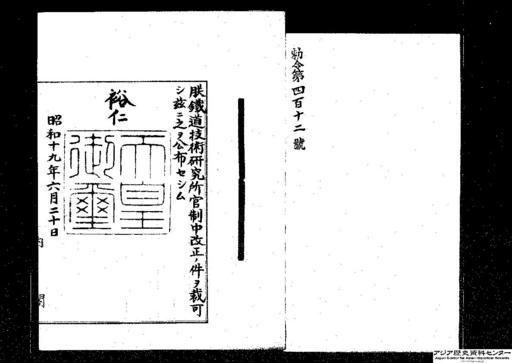 勅令第四百十二號
朕鐵道技術研究所官制中改正ノ件ヲ裁可
シ茲ニ之ヲ公布セシム
裕仁
天皇御璽
昭和十九年六月二十日
内閣
アジア歴史資料センター
Japan Center for Asian Historical Records